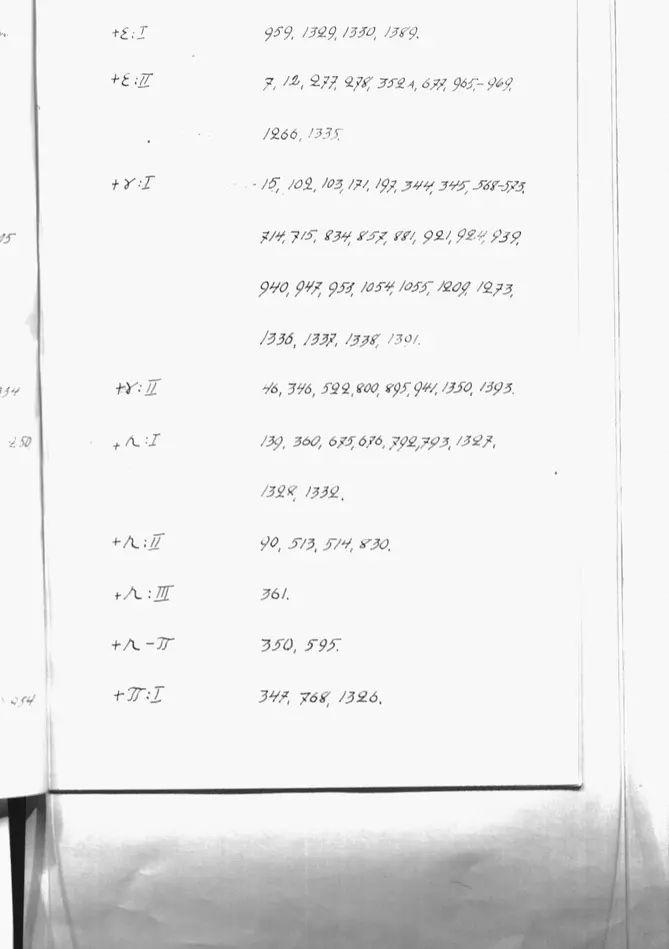 +ε:I 959, 1329, 1330, 1389.
+ε:II 7, 12, 277, 278, 352A, 677, 965-969,
1266, 1335.
+γ:I 15, 102, 103, 171, 197, 344, 345, 568-573,
714, 715, 834, 857, 881, 921, 924, 939,
940, 947, 953, 1054, 1055, 1209, 1273,
1336, 1337, 1338, 1391.
+γ:II 46, 346, 522, 800, 895, 941, 1350, 1393.
+r:I 139, 360, 675, 676, 792, 793, 1327,
1328, 1332.
+r:II 90, 513, 514, 830.
+r:III 361.
+r-π 350, 595.
+π:I 347, 768, 1326.